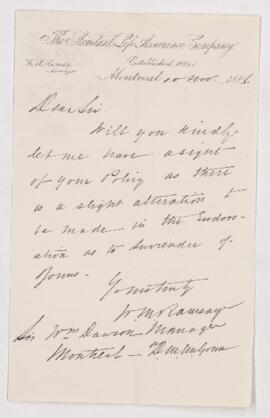 The Standard Life Assurance Company
Established 1825
W. M. Ramsay
Manager
Montreal 20 Nov. 1886
Dear Sir
Will you kindly
let me have a sight
of your Policy as there
is a slight alteration to
be made in the Endors-
ation as to surrender of
Bonus -
Yours truly
W M Ramsay
Manager
Sir Wm Dawson
Montreal -